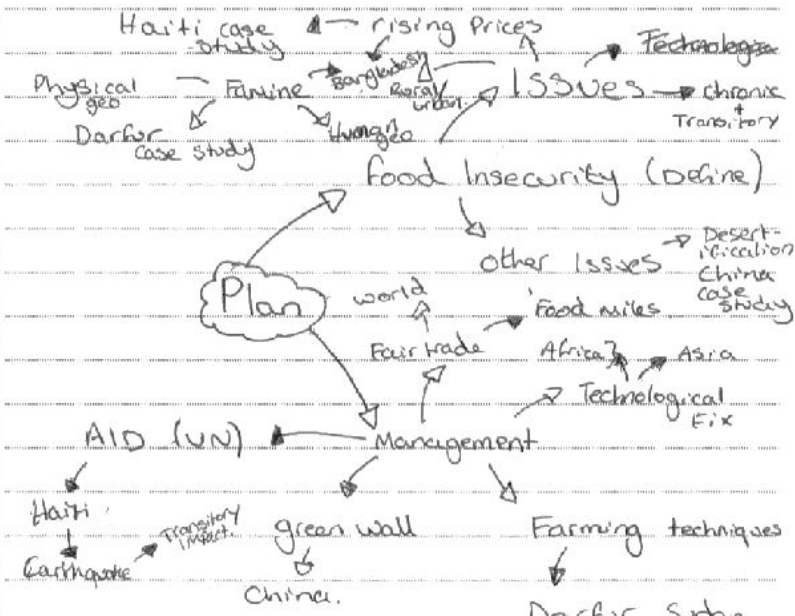 Haiti case study
rising Prices
Physical geo
Famine
Bangladesh
Rural/
urban.
Issues
Technologie
chronic
+
Transitory
Darfur
case study
Human
geo
Food Insecurity (Define)
other Issues
Desert-
ification
China
case
study
Plan
world
Food miles
Fairtrade
Africa?
Asia
Technological
Fix
AID (UN)
Management
Haiti
Transitory
impact.
green wall
Farming techniques
Earthquake
China.
Darfur